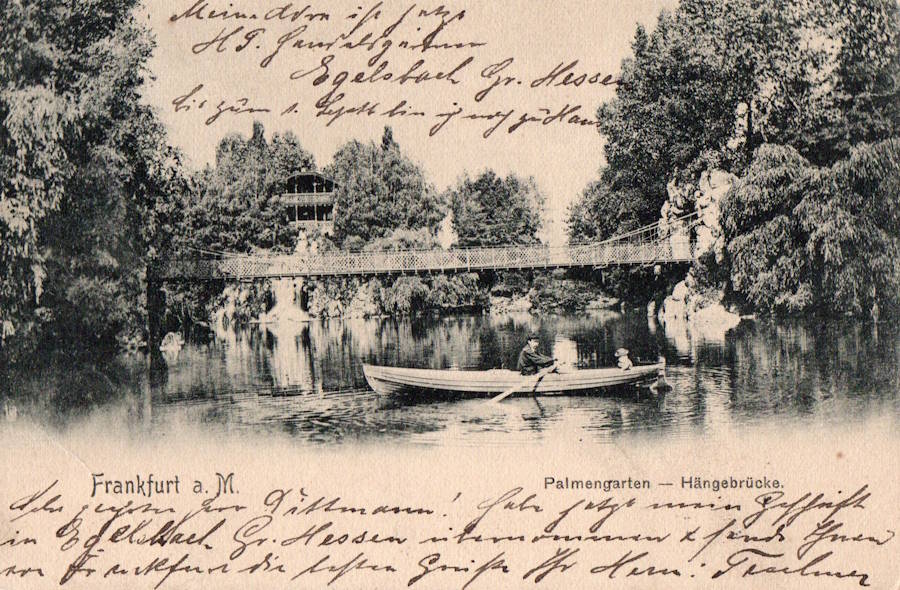 Meine ist jetzt
Handelsgärtn
Egelsbach Gr. Hessen
bis zum 1. Sept bin ich noch zu
Frankfurt a. M.
Palmengarten — Hängebrücke.
Sehr geehrter Herr Dittmann! Habe jetzt mein Geschäft
in Egelsbach Gr. Hessen übernommen & sende Ihnen
vor Frankfurt die besten Grüße Ihr Herm: